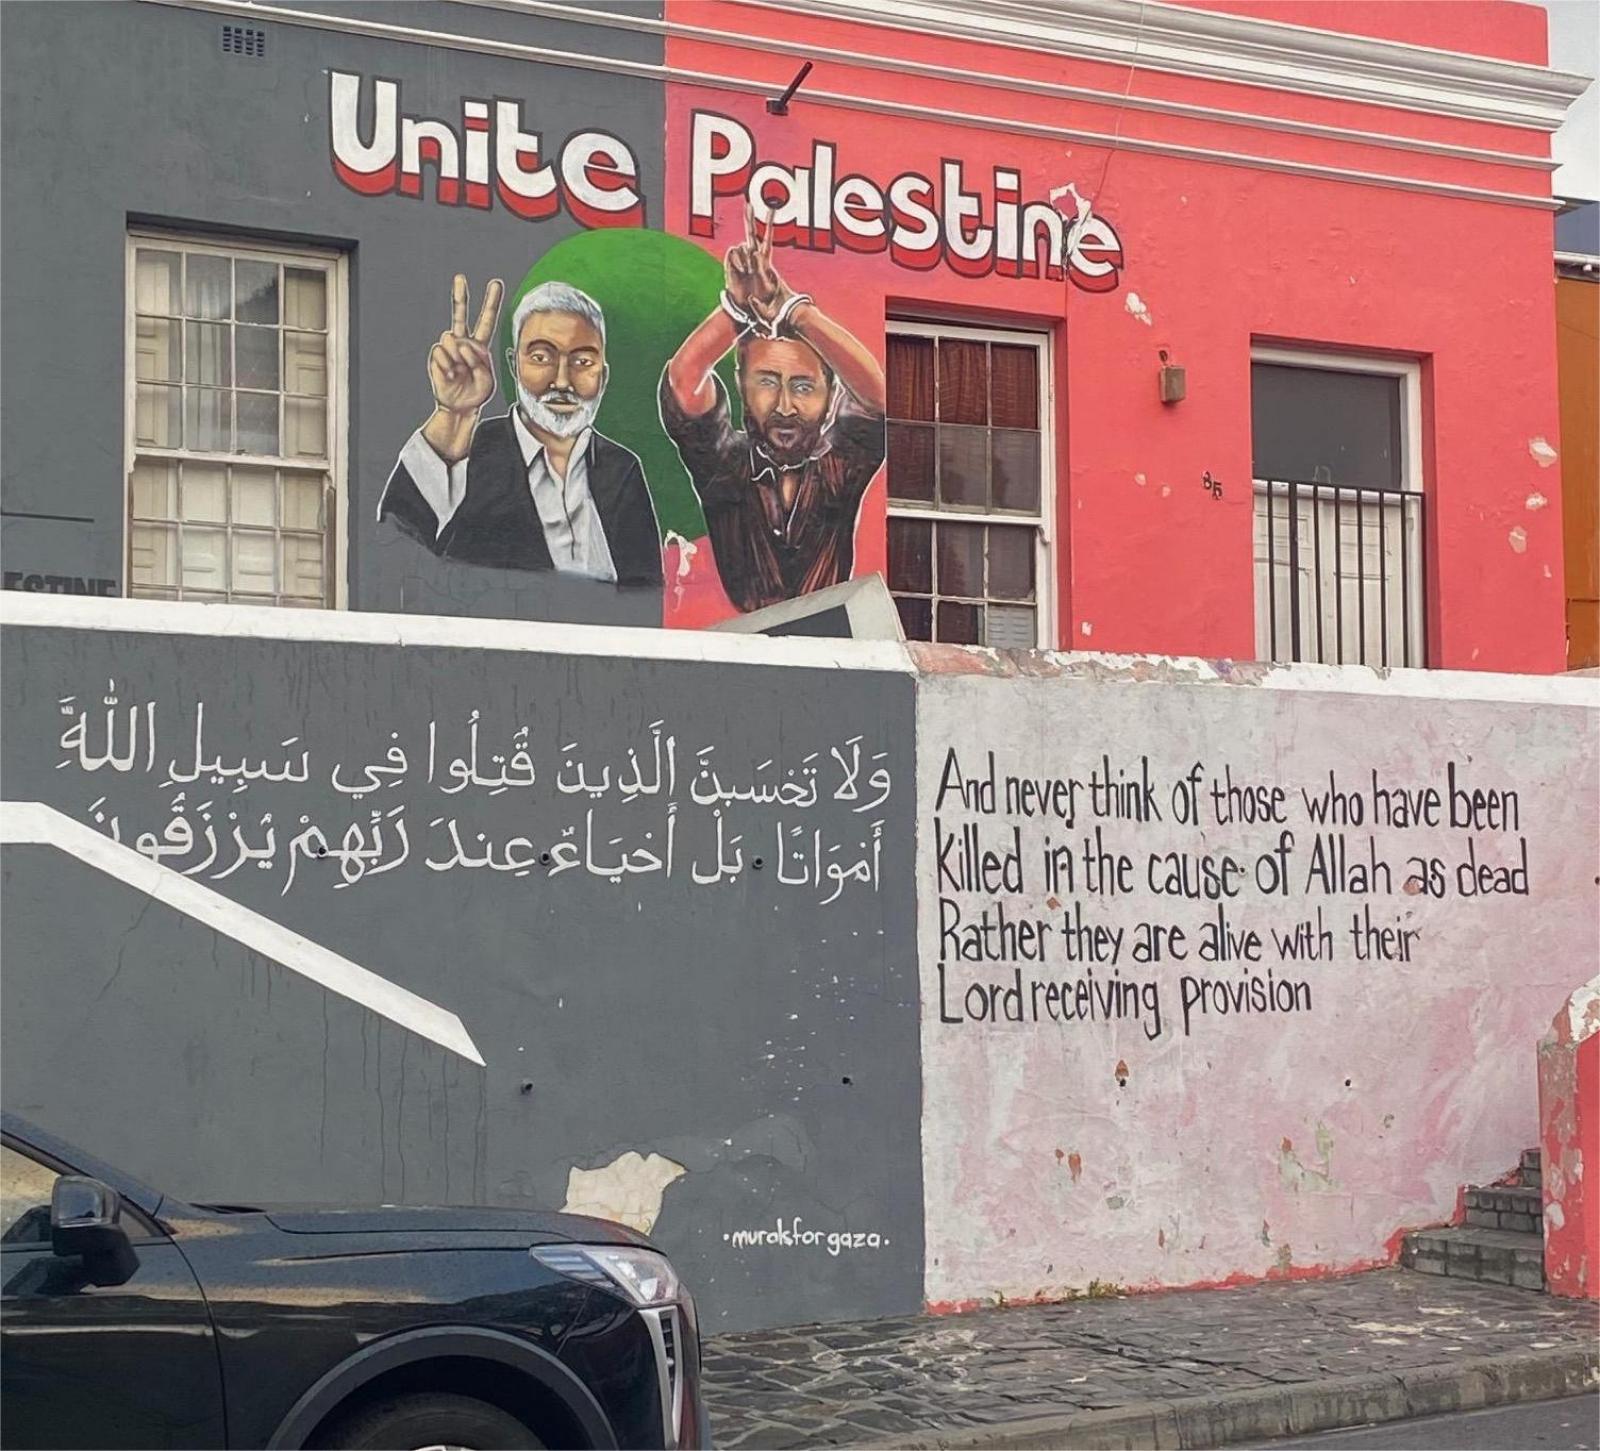 Unite Palestine
85
ESTINE
وَلَا تَحْسَبَنَّ الَّذِينَ قُتِلُوا فِي سَبِيلِ اللَّهِ
أَمْوَاتًا بَلْ أَحْيَاءٌ عِندَ رَبِّهِمْ يُرْزَقُونَ
And never think of those who have been
Killed in the cause of Allah as dead
Rather they are alive with their
Lord receiving provision
.muralsforgaza.